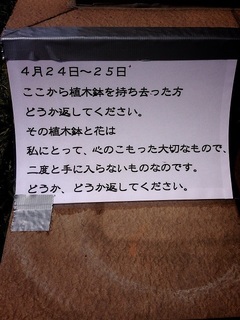 ４月２４日～２５日
ここから植木鉢を持ち去った方
どうか返してください。
その植木鉢と花は
私にとって、心のこもった大切なもので、
二度と手に入らないものなのです。
どうか、どうか返してください。